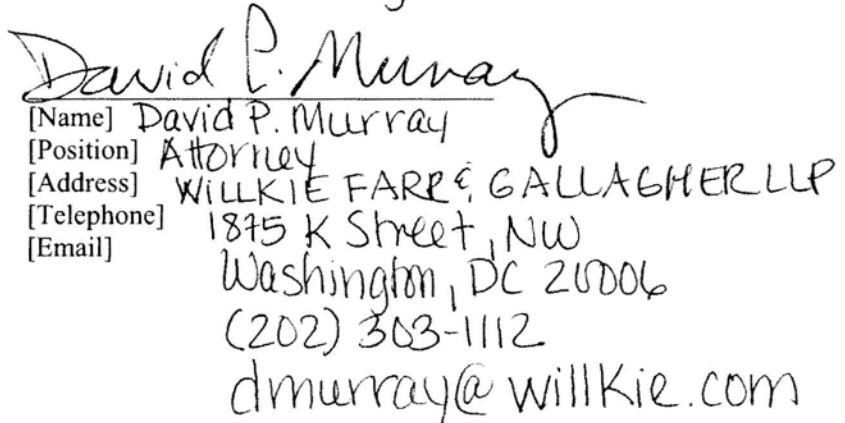 David P. Murray
[Name] David P. Murray
[Position] Attorney
[Address] WILLKIE FARR & GALLAGHER LLP
[Telephone] 1875 K Street, NW
[Email]
Washington, DC 20006
(202) 303-1112
dmurray@willkie.com